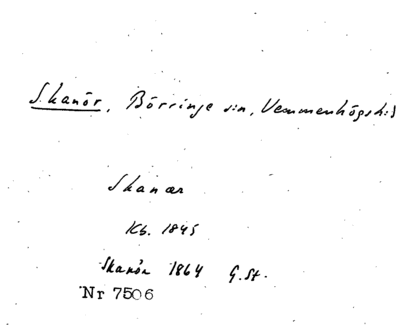 Skanör, Börringe s:n, Vemmenhögs h:d
Skanær
Kb. 1845
Skanör 1864 G.St.
Nr 7506